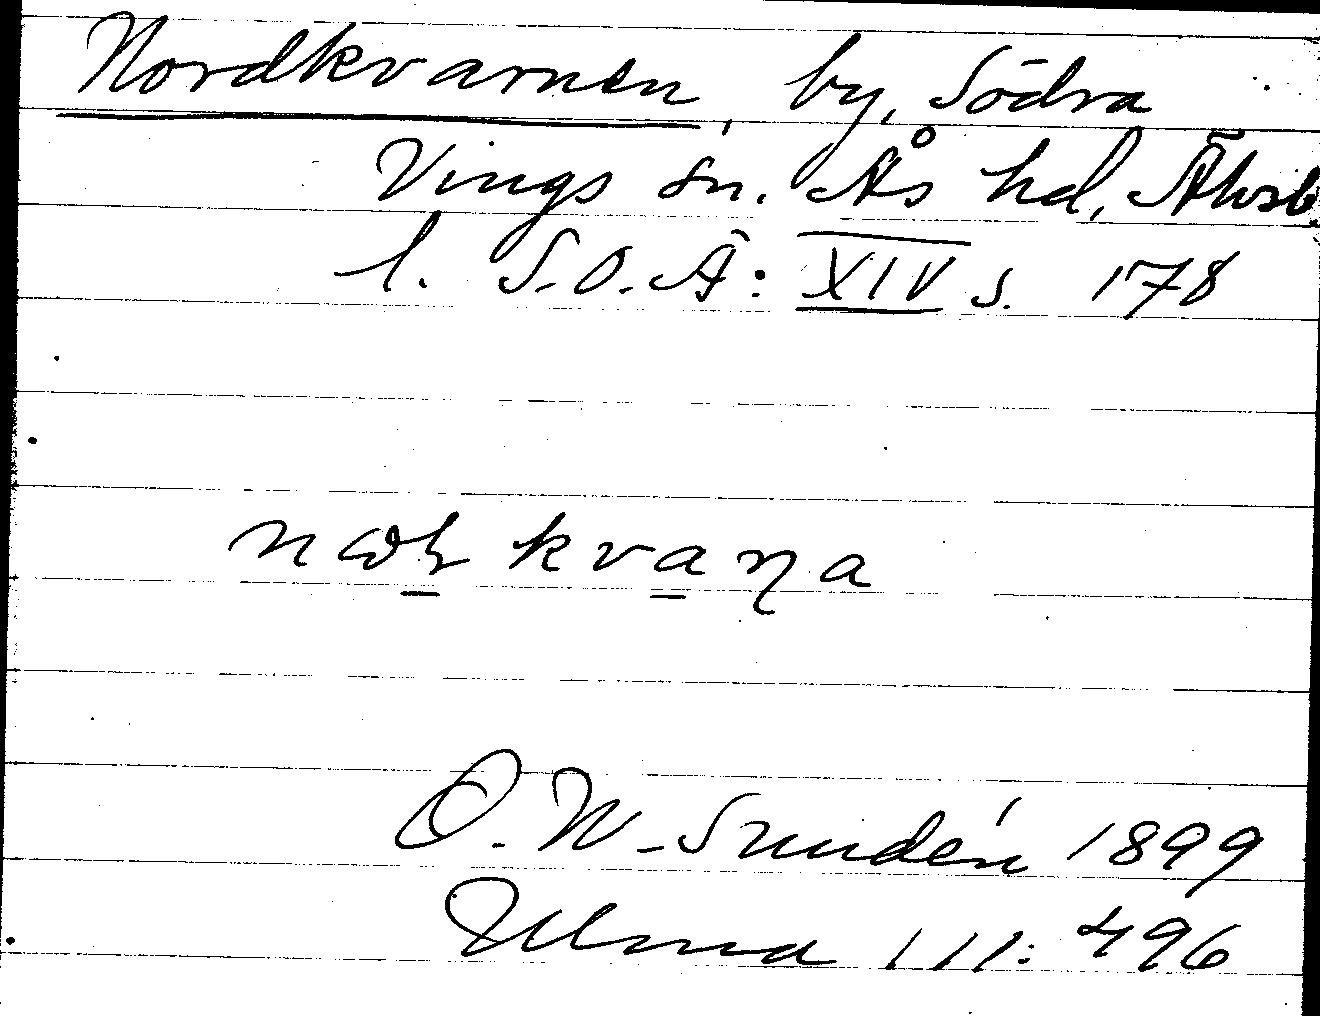 Nordkvarnen, by, Södra
Vings sn. Ås hd, Älvsb.
l. S.O.Ä: XIV s. 178
kvaɳa
O.W. Sundén 1899
Ulma 111: 496